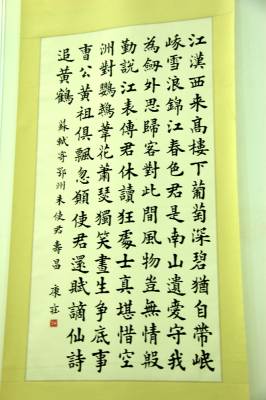 江漢西來高樓下葡萄深碧猶自帶岷
峨雪浪錦江春色君是南山遺愛守我
為劔外思歸客對此間風物豈無情殷
勤說江表傳君休讀狂處士真堪惜空
洲對鸚鵡葦花蕭瑟獨笑書生爭底事
曹公黃祖俱飄忽願使君還賦謫仙詩
追黃鶴 蘇軾寄鄂州朱使君壽昌 康